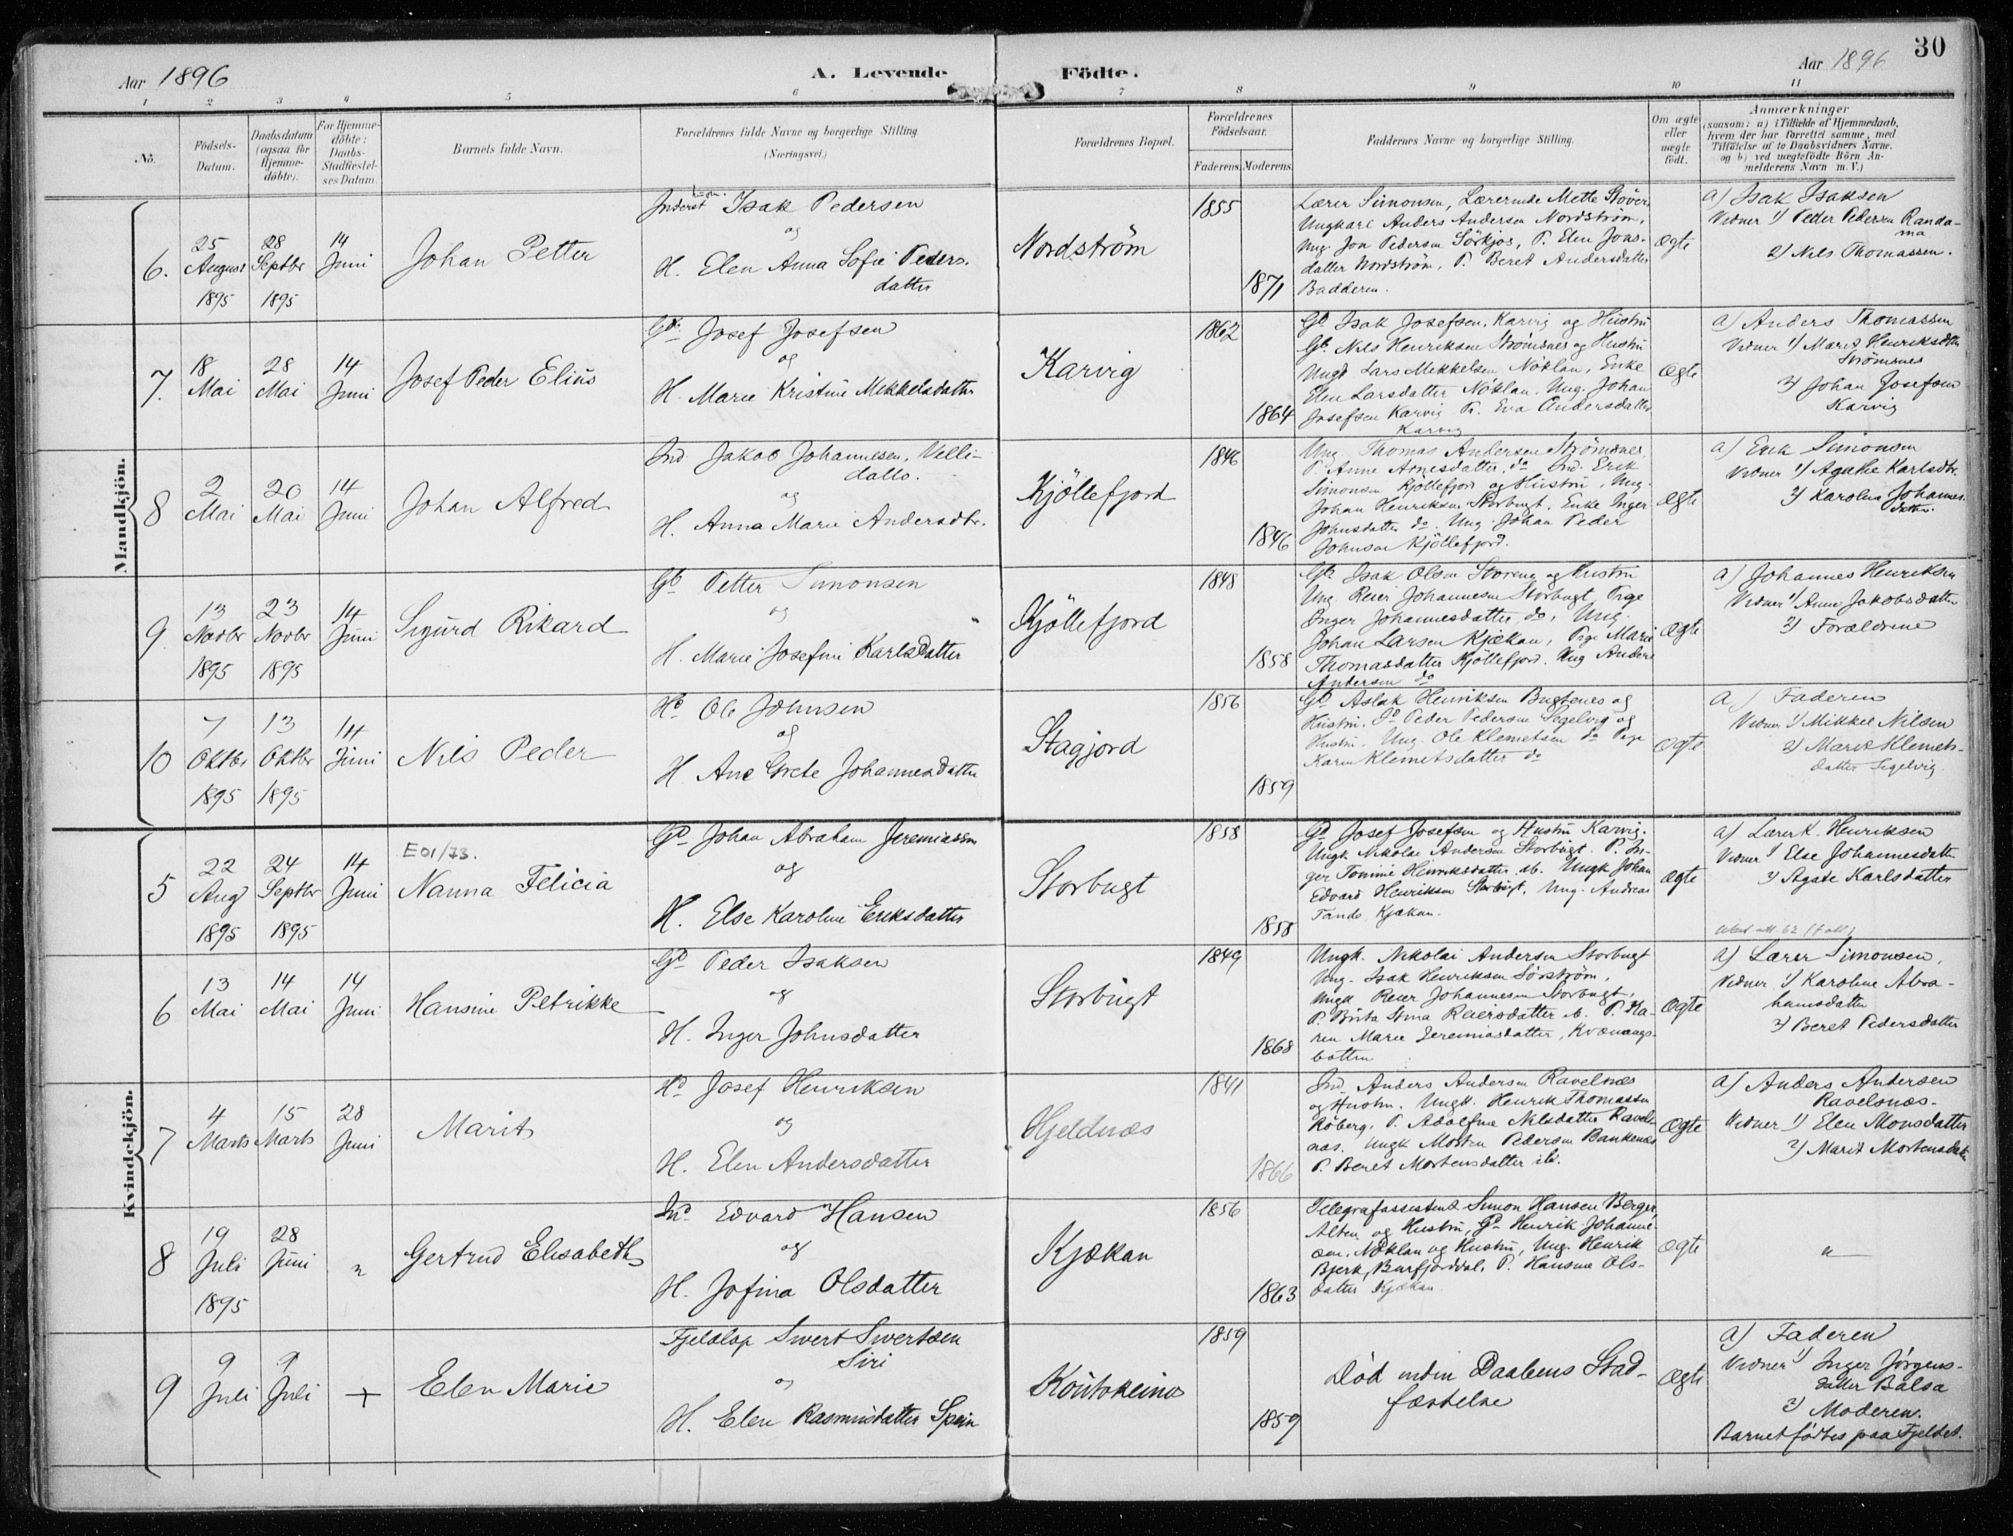 30
Aar 1896
A. Levende Födte.
Aar 1896
1 2 3 4 5 6 7 8 9 10 11
No.
Födsels-
Datum.
Daabsdatum
(ogsaa for
Hjemme-
döbte).
For Hjemme-
döbte:
Daabs-
Stadfæstel-
ses Datum.
Barnets fulde Navn.
Forældrenes fulde Navne og borgerlige Stilling.
(Næringsvei.)
Forældrenes Bopæl.
Forældrenes
Födselsaar.
Faderens. Moderens.
Faddernes Navne og borgerlige Stilling.
Om ægte
eller
uægte
födt.
Anmærkninger
(saasom: a) i Tilfælde af Hjemmedaab,
hvem der har forrettet samme, med
Tilföielse af to Daabsvidners Navne,
og b) ved uægtefödte Börn An-
melderens Navn m. V.)
Mandkjön.
6.
25
August
1895
28
Septbr
1895
14
Juni
Johan Petter
Inderst Isak Pedersen
og
H. Elen Anna Sofie Peders-
datter
Nordström
1855
1871
Lærer Simonsen, Lærerinde Mette Stöver,
Ungkarl Anders Andersen Nordström,
Ung. Jon Pedersen Sörkjos, P. Elen Jons-
datter Nordström, P. Beret Andersdatter
Badderen.
Ægte
a) Isak Isaksen
Vidner 1) Peder Pedersen Randa-
ma
2) Nils Thomassen.
7.
18
Mai
28
Mai
14
Juni
Josef Peder Elius
Gb. Josef Josefsen
og
H. Marie Kristine Mikkelsdatter
Karvig
1862
1864
Gb Isak Josefsen, Karvig og Hustru
Gb. Nils Henriksen Strömsnes og Hustru
Ungk Lars Mikkelsen Nöklan, Enke
Elen Larsdatter Nöklan, Ung. Johan
Josefsen Karvig P. Eva Andersdatter
Karvig
Ægte
a) Anders Thomassen
Vidner 1) Maret Henriksdtr
Strömsnes
2) Johan Josefsen
Karvig
8
2
Mai
20
Mai
14
Juni
Johan Alfred
Ind. Jakob Johannesen, Velli-
dalto.
og
H. Anna Marie Andersdtr.
Kjöllefjord
1846
1846
Ung Thomas Andersen Strömsnes,
P. Anne Arnesdatter, do Ind. Erik
Simonsen Kjöllefjord og Hustru, Ung.
Johan Henriksen Storbugt, Enke Inger
Johnsdatter do. Ung. Johan Peder
Johnsen Kjöllefjord.
Ægte
a) Erik Simonsen
Vidner 1) Agathe Karlsdtr.
2) Karolina Johannes-
datter.
9.
13
Novbr
1895
23
Novbr
1895
14
Juni
Sigurd Rikard
Gb Petter Simonsen
og
H. Marie Josefine Karlsdatter
Kjöllefjord
1848
1858
Gb. Isak Olsen Storeng og Hustru
Ung Reier Johannesen Storbugt, Pige
Inger Johannesdatter do, Ung.
Johan Larsen Kjækan, Pige Marie
Thomasdatter Kjöllefjord. Ung Anders
Andersen do
Ægte
a) Johannes Henriksen
Vidner 1) Anna Jakobsdatter
2) Forældrene
10
7
Oktbr
1895
13
Oktbr
1895
14
Juni
Nils Peder
Hd Ole Johnsen
og
H. Ane Grete Johannesdatter
Stagjord
1856
1859
Gb Aslak Henriksen Bugtenes og
Hustru. Do Peder Pedersen Segelvig og
Hustru. Ung. Ole Klemetsen do Pige
Karen Klemetsdatter do
Ægte
a) Faderen
Vidner 1) Mikkel Nilsen
2) Marit Klemets-
datter Segelvig
Kvindekjön.
5
22
Aug
1895
24
Septbr
1895
14
Juni
E01/73.
Nanna Felicia
Gd Johan Abraham Jeremiassen
og
H. Else Karoline Eriksdatter
Storbugt
1858
1858
Gd Josef Josefsen og Hustru Karvig.
Ungk Nikolai Andersen Storbugt. P. In-
ger Tomine Henriksdatter ib. Ungk Johan
Edvard Henriksen Storbugt. Ung. Andreas
Tande, Kjækan.
Ægte
a) Lærer K. Henriksen
Vidner 1) Else Johannesdatter
2) Agate Karlsdatter
6
13
Mai
14
Mai
14
Juni
Hansine Petrikke
Gd Peder Isaksen
og
H. Inger Johnsdatter
Storbugt
1849
1868
Ungk. Nikolai Andersen Storbugt
Ung. Isak Henriksen Sörström,
Ungk Reier Johannesen Storbugt,
P. Brita Stina Reiersdatter ib. P. Ka-
ren Marie Jeremiasdatter, Kvænangs-
botten
Ægte
a) Lærer Simonsen,
Vidner 1) Karoline Abra-
hamsdatter
2) Beret Pedersdatter
7
4
Marts
15
Marts
28
Juni
Marit
Hd Josef Henriksen
og
H. Elen Andersdatter
Hjeldnæs
1841
1866
Ind. Anders Andersen Ravelsnæs
og Hustru. Ungk. Henrik Thomassen
Röberg, P. Adolfine Nilsdatter Ravels-
nas. Ungk Morten Pedersen Bankenæs
P. Beret Mortensdatter ib.
Ægte
a) Anders Andersen
Ravelsnæs.
Vidner 1) Elen Monsdatter
2) Marit Mortensdatter
8
19
Juli
1895
28
Juni
"
Gertrud Elisabeth
Ind Edvard Hansen
og
H. Jofina Olsdatter
Kjækan
1856
1863
Telegrafassistent Simon Hansen Berger,
Alten og Hustru, Gd Henrik Johanne-
sen, Nöklan og Hustru, Ung. Henrik
Bjerk, Burfjorddal, P. Hansine Ols-
datter Kjækan.
Ægte
"
9
9
Juli
9
Juli
+
Elen Marie
Fjeldlap Sivert Sivertsen
Siri
og
H. Elen Rasmusdatter Spein
Koutokeino
1859
1859
Död inden Daabens Stad-
fæstelse
Ægte
a) Faderen
Vidner 1) Inger Jörgens-
datter Balsa
2) Moderen.
Barnet födtes paa Fjeldet.